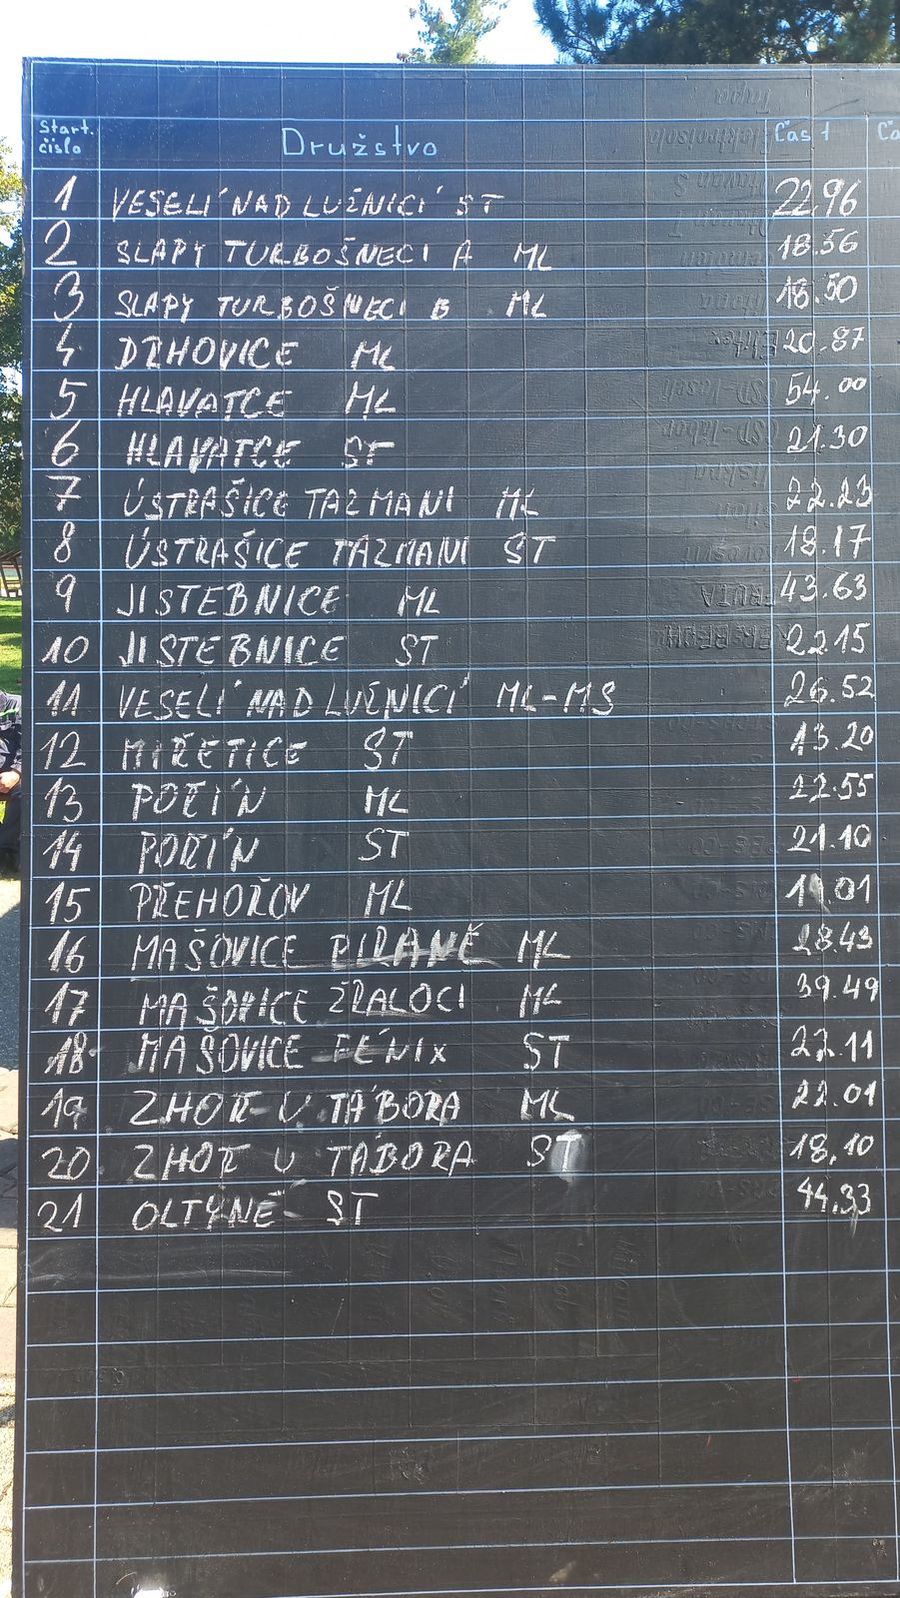 Start. číslo Družstvo Čas 1
1 VESELÍ NAD LUŽNICÍ ST 22.96
2 SLAPY TURBOŠNECI A ML 18.56
3 SLAPY TURBOŠNECI B ML 18.50
4 DRHOVICE ML 20.87
5 HLAVATCE ML 54.00
6 HLAVATCE ST 21.30
7 ÚSTRAŠICE TAZMANI ML 22.23
8 ÚSTRAŠICE TAZMANI ST 18.17
9 JISTEBNICE ML 43.63
10 JISTEBNICE ST 22.15
11 VESELÍ NAD LUŽNICÍ ML-MS 26.52
12 MIŘETICE ST 13.20
13 POŘÍN ML 22.55
14 POŘÍN ST 21.10
15 PŘEHOŘOV ML
16 MAŠOVICE PIRANĚ ML 28.43
17 MAŠOVICE ŽRALOCI ML 39.49
18 MAŠOVICE FÉNIX ST 22.11
19 ZHOŘ U TÁBORA ML 22.01
20 ZHOŘ U TÁBORA ST 18,10
21 OLTYNĚ ST 44.33